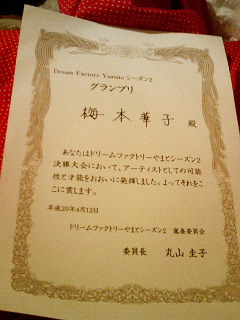 Dream Factory Yamato シーズン2
グランプリ
梅本華子 殿
あなたはドリームファクトリーやまとシーズン2
決勝大会において、アーティストとしての可能
性と才能をおおいに発揮しました。よってそれをこ
こに賞します。
平成20年4月12日
ドリームファクトリーやまとシーズン2 審査委員会
委員長 丸山 圭子